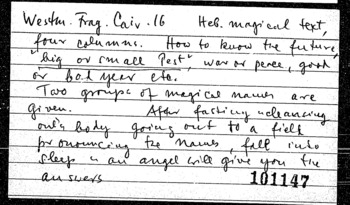 Westm. Frag. Cair. 16 Heb. magical text,
four columns. How to know the future,
"big or small Pest", war or peace, good
or bad year etc.
Two groups of magical names are
given. After fasting & cleansing
one's body going out to a field
pronouncing the names, fall into
sleep & an angel will give you the
answers 101147